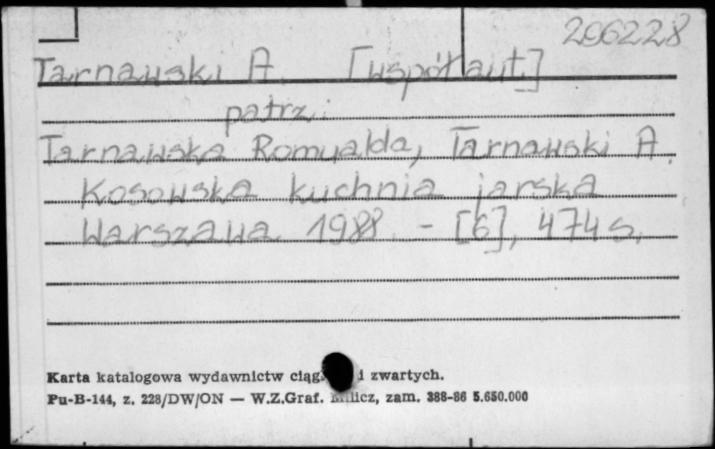 206228
Tarnawski A. [współaut.]
patrz:
Tarnawska Romualda, Tarnawski A.
Kosowska kuchnia jarska
Warszawa 1988. - [6], 474 s.
Karta katalogowa wydawnictw ciąg. i zwartych.
Pu-B-144, z. 228/DW/ON — W.Z.Graf. Milicz, zam. 388-86 5.650.000